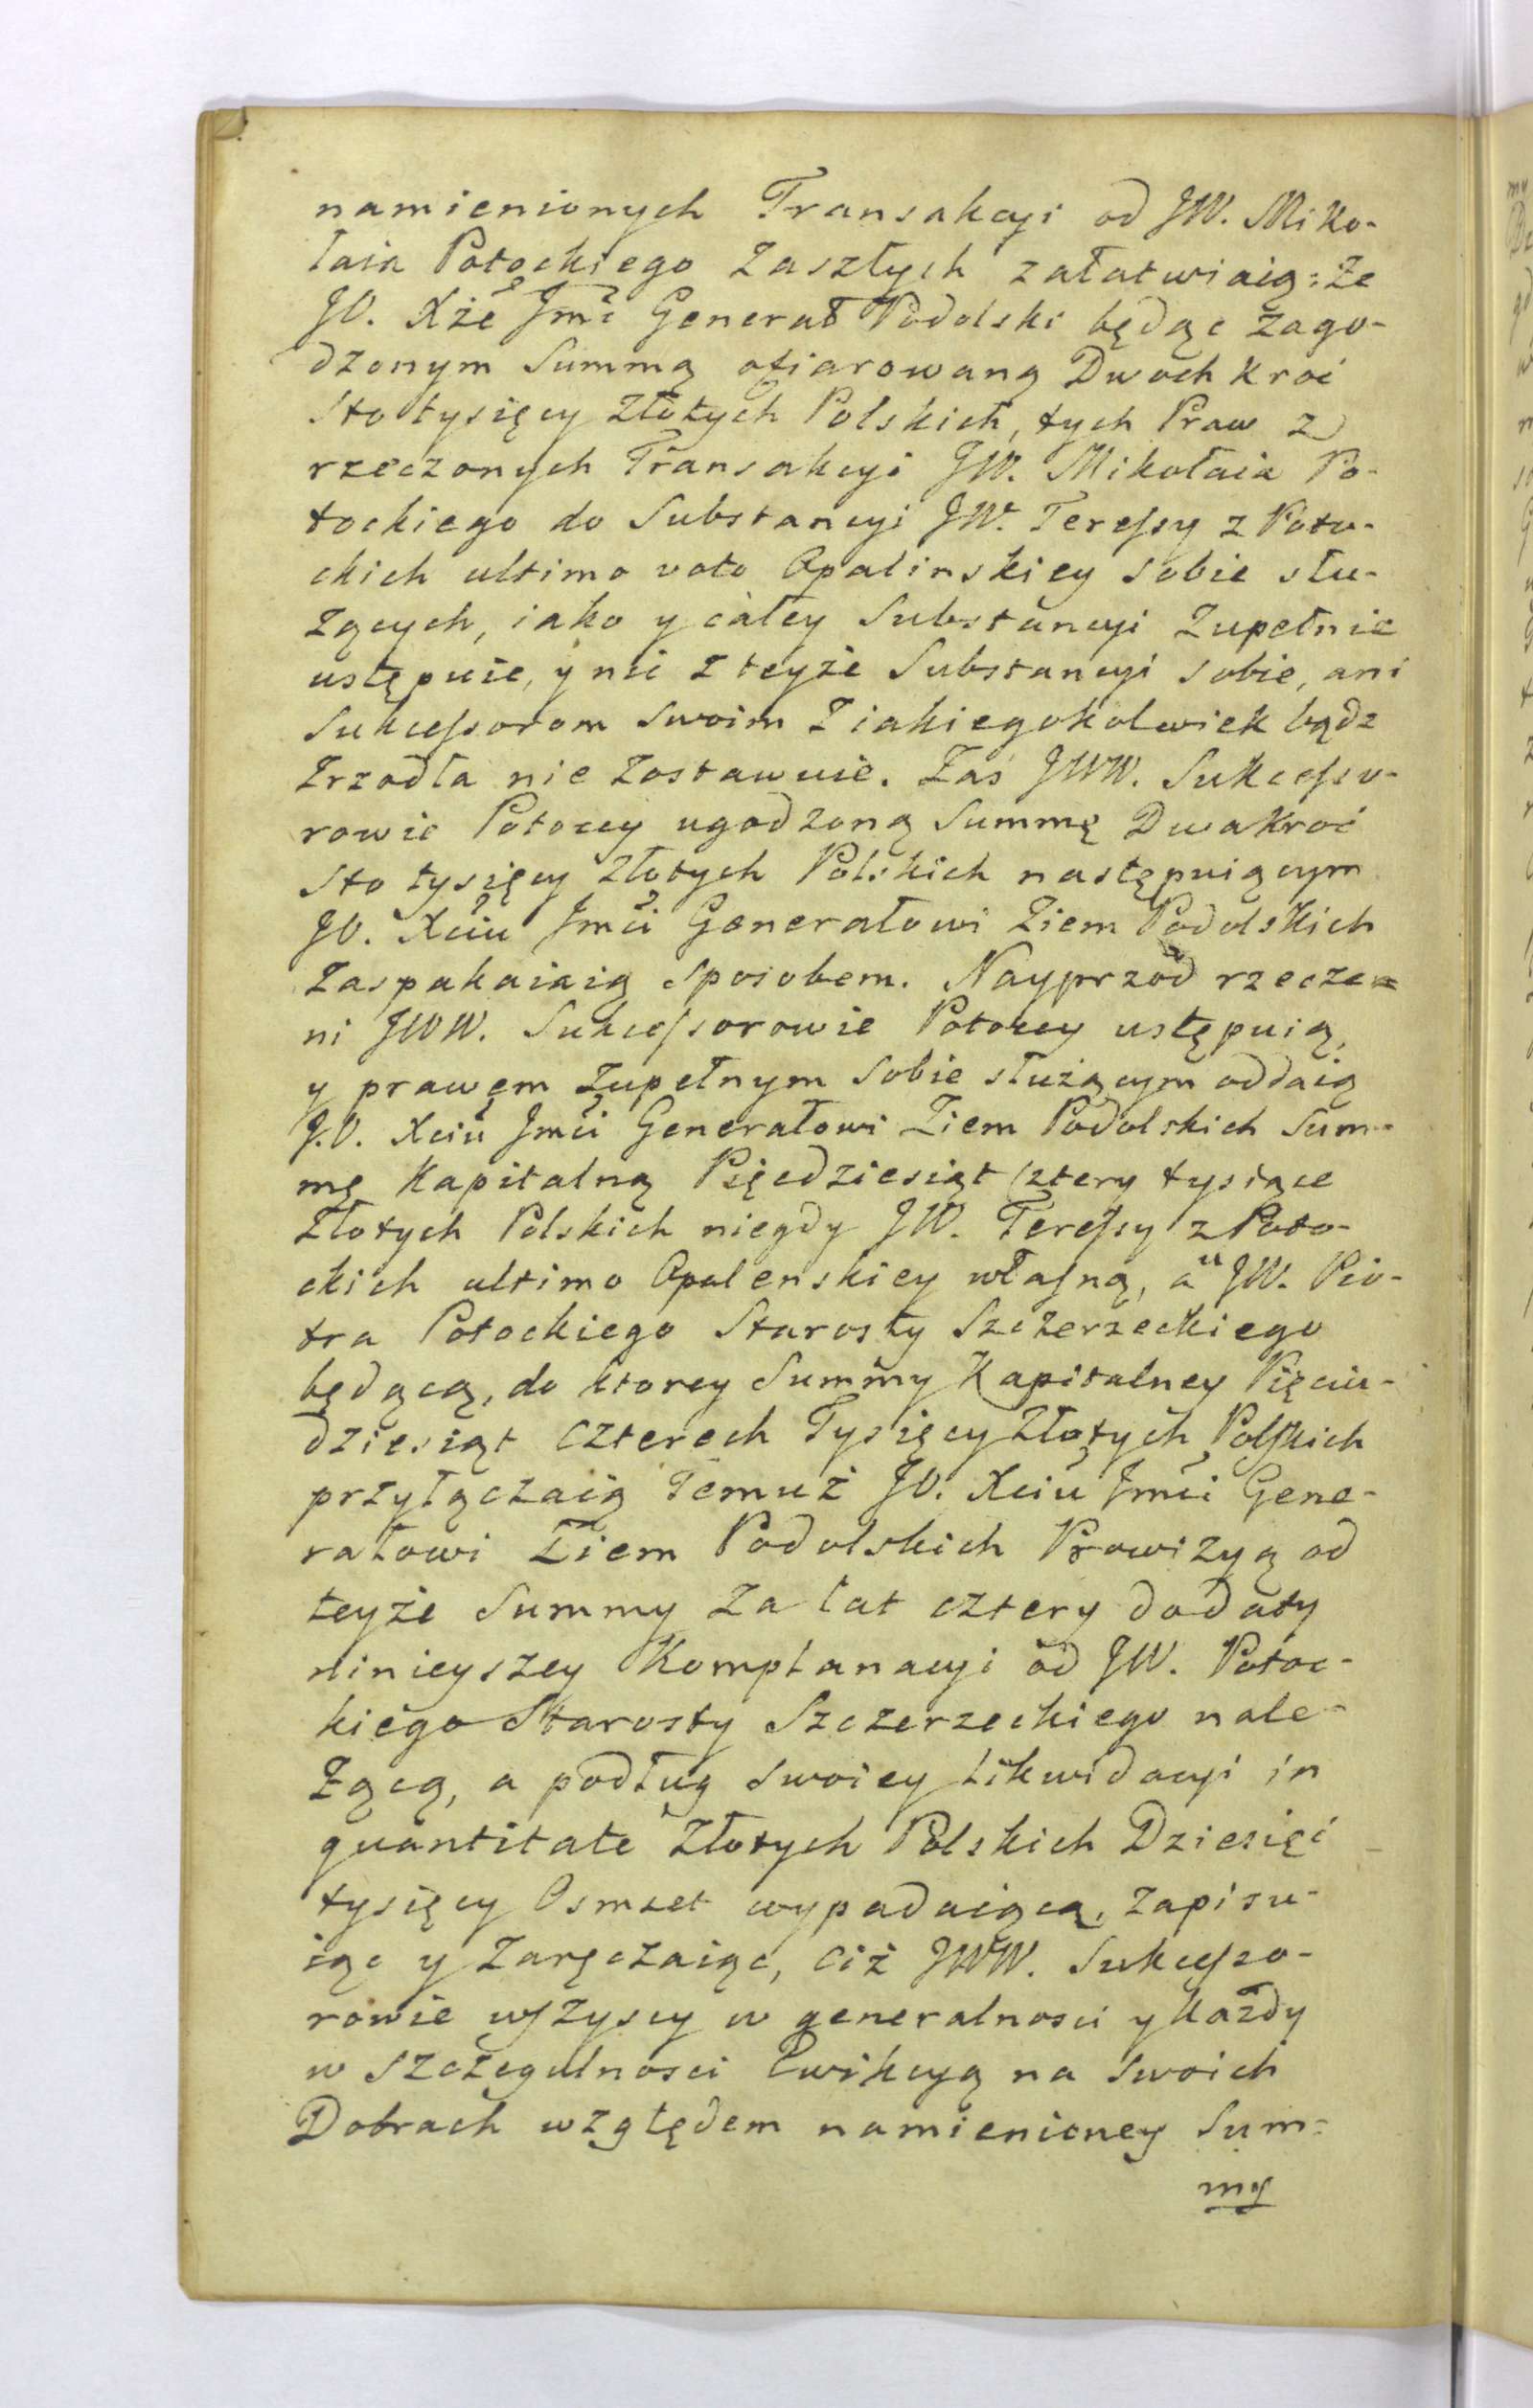 namienionych Transakcyi od JW. Miko-
łaia Potockiego zaszłych załatwiaią: że
JO. Xże Jmć Generał Podolski będąc zago-
dzonym Summą ofiarowaną Dwoch kroć
sto tysięcy Złotych Polskich, tych Praw z
rzeczonych Transakcyi JW. Mikołaia Po-
tockiego do Substancyi JW. Teressy z Poto-
ckich ultimo voto Opalinskiey sobie słu-
żących, iako y całey Substancyi zupełnie
ustępuie, y nic z teyże Substancyi sobie, ani
Sukcessorom swoim z iakiegokolwiek bądz
zrzodła nie zostawuie. Zaś JWW. Sukcesso-
rowie Potoccy ugodzoną Summę Dwakroć
sto tysięcy Złotych Polskich następuiącym
JO. Xciu Jmći Generałowi Ziem Podolskich
zaspakaiaią sposobem. Nayprzod rzecze-
ni JWW. Sukcessorowie Potoccy ustępuią,
y prawem zupełnym sobie służącym oddaią
J.O. Xciu Jmći Generałowi Ziem Podolskich Sum-
mę Kapitalną Pięcdziesiąt cztery tysiące
Złotych Polskich niegdy JW. Teressy z Poto-
ckich ultimo Opalenskiey własną, a u JW. Pio-
tra Potockiego Starosty Szczerzeckiego
będącą, do ktorey Summy Kapitalney Pięciu-
dziesiąt czterech Tysięcy Złotych Polskich
przyłączaią Temuż JO. Xciu Jmći Gene-
rałowi Ziem Podolskich Prowizyą od
teyże Summy za lat cztery do daty
ninieyszey Komplanacyi od JW. Potoc-
kiego Starosty Szczerzeckiego nale-
żącą, a podług swoiey Likwidacyi in
quantitate Złotych Polskich Dziesięć
tysięcy Osmset wypadaiącą, zapisu-
iąc y zaręczaiąc, ciż JWW. Sukcesso-
rowie wszyscy w generalnosci y każdy
w szczegulnosci Ewikcyą na swoich
Dobrach względem namienioney Sum-
my